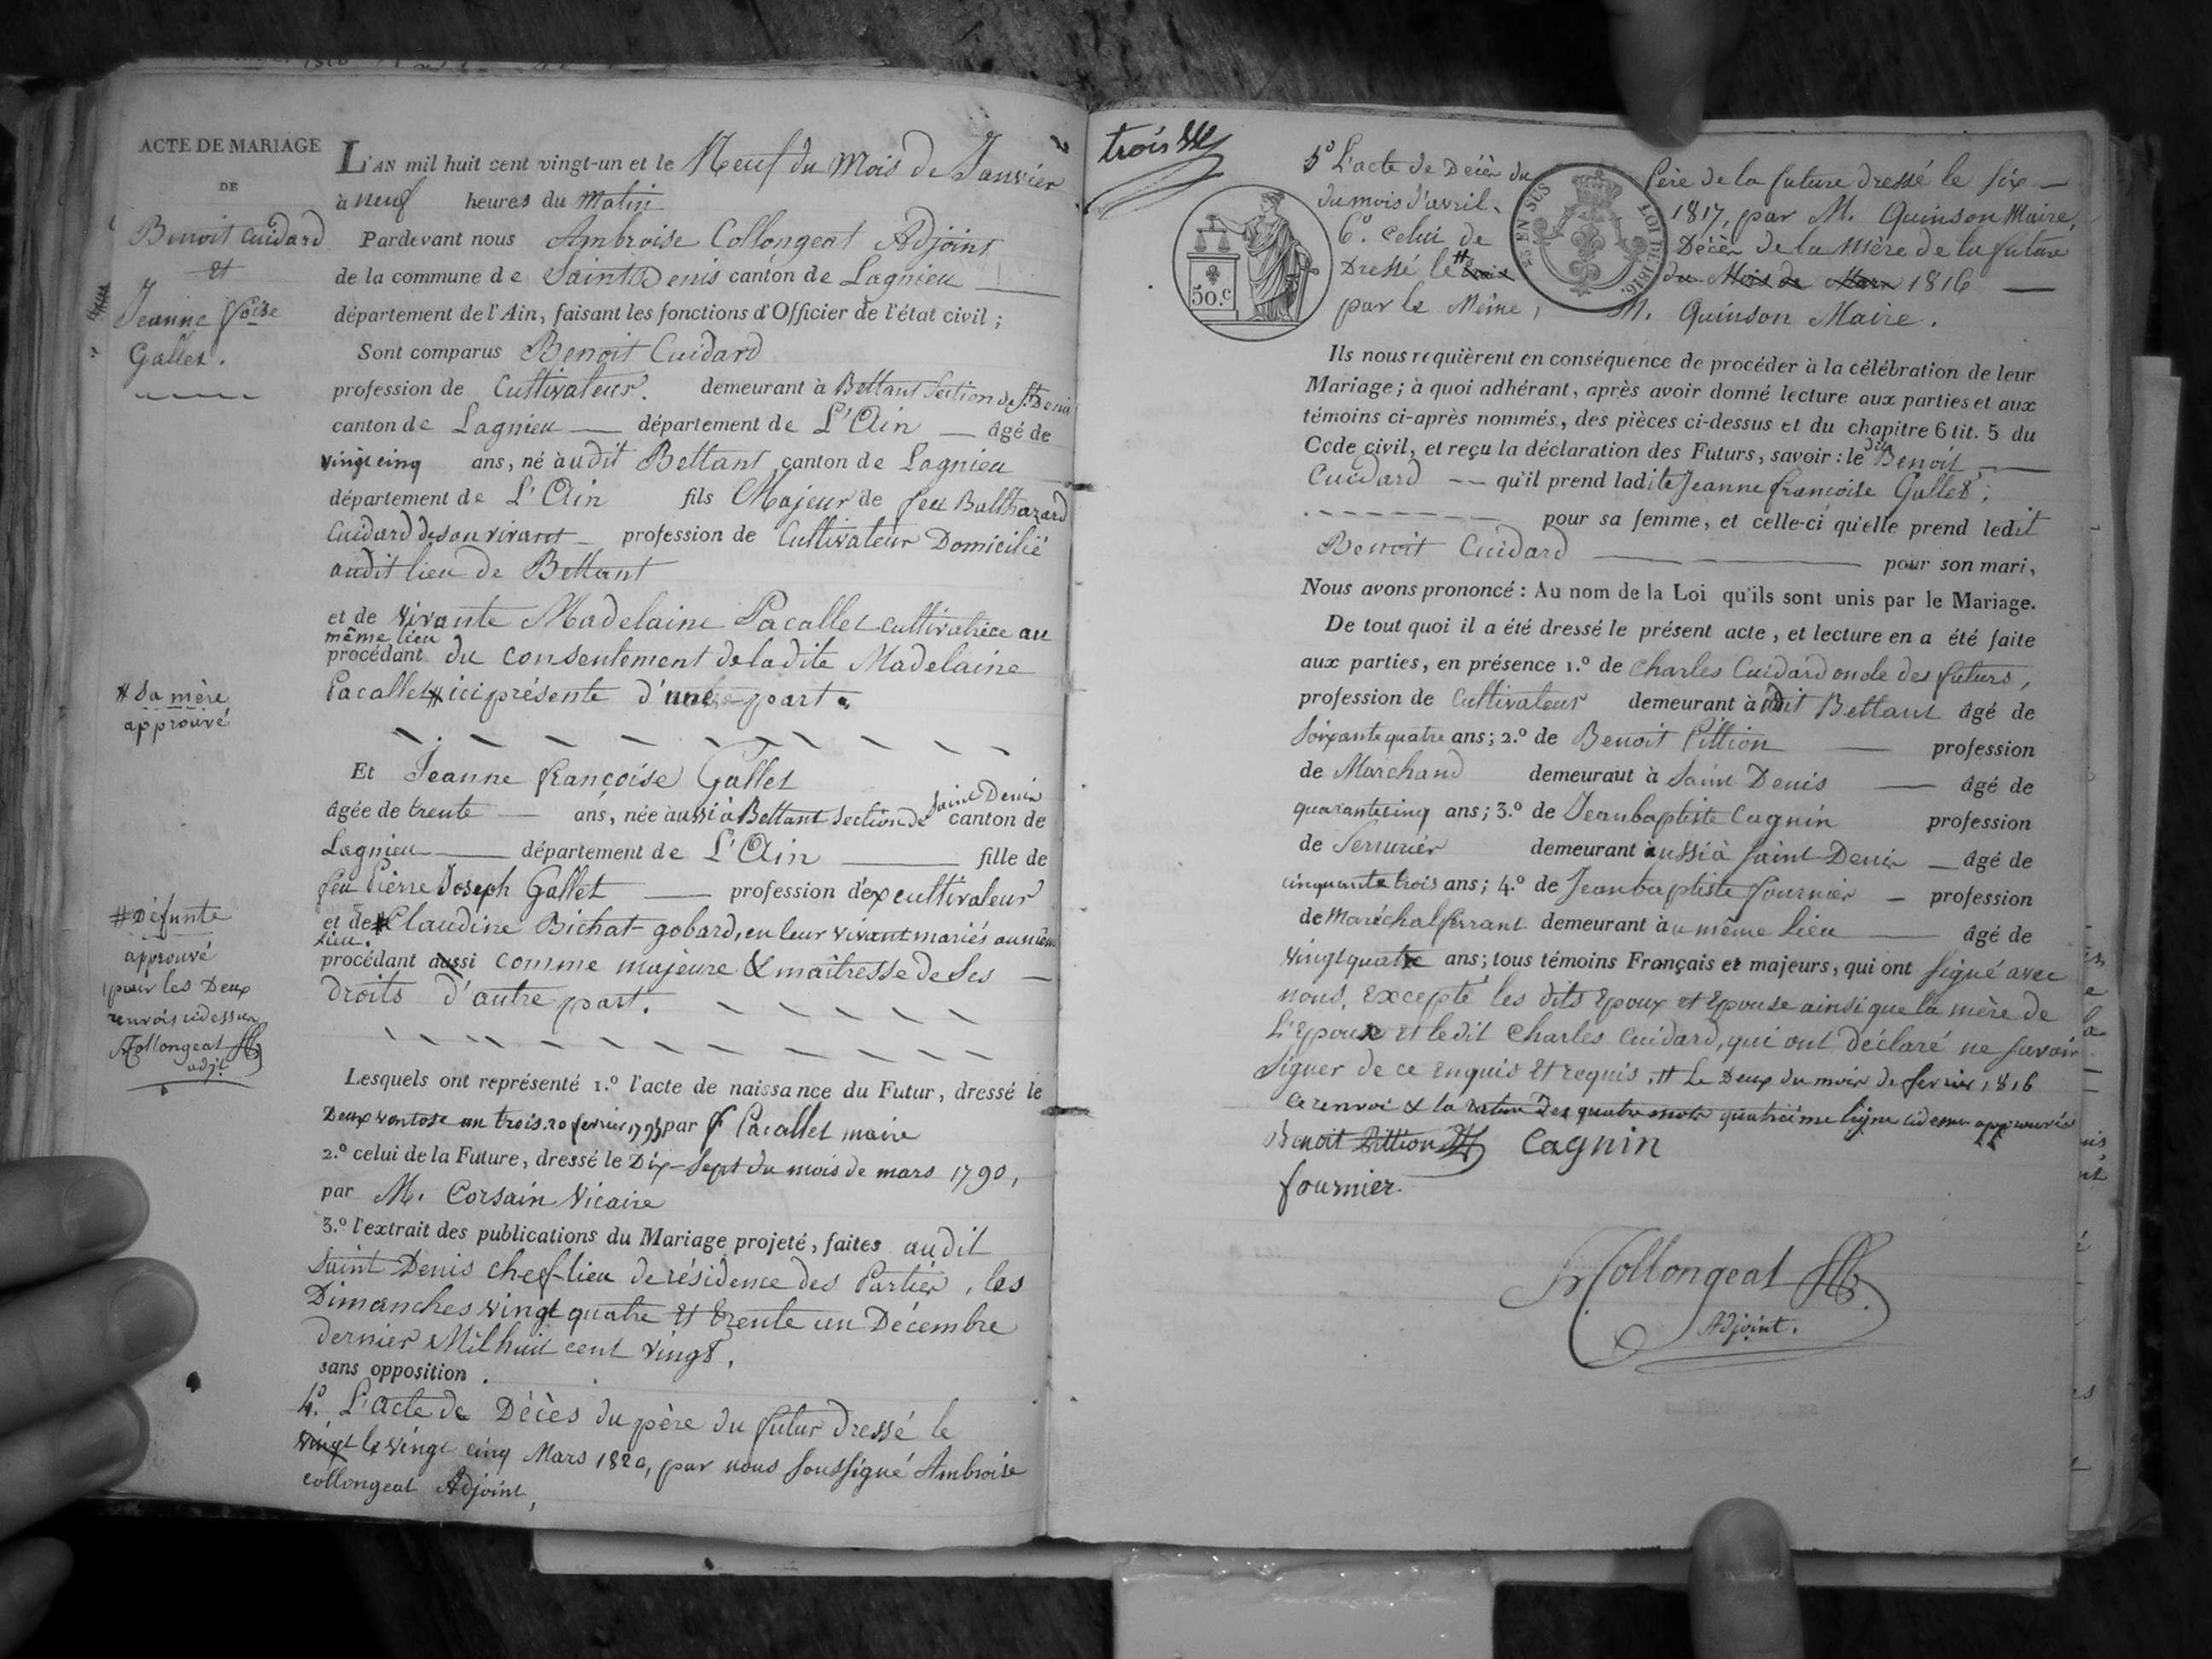 ACTE DE MARIAGE
DE
Benoit Cuidard
et
Jeanne f.oise
Gallet.
# Sa mère
approuvé
# Défunte
approuvé
pour les Deux
renvois cidessus
Collongeat
adj.t
L'AN mil huit cent vingt-un et le Neuf du Mois de Janvier
à neuf heures du Matin
Pardevant nous Ambroise Collongeat Adjoint
de la commune de Saint Denis canton de Lagnieu
département de l'Ain, faisant les fonctions d'Officier de l'état civil ;
Sont comparus Benoit Cuidard
profession de Cultivateur. demeurant à Bettant Section de St. Denis
canton de Lagnieu département de L'Ain âgé de
vingt cinq ans, né audit Bettant canton de Lagnieu
département de L'Ain fils Majeur de feu Balthazard
Cuidard de son vivant profession de Cultivateur Domicilié
audit lieu de Bettant
et de vivante Madelaine Pacallet cultivatrice au
même lieu
procédant du consentement de ladite Madelaine
Pacallet # ici présente d'une part.
Et Jeanne françoise Gallet
âgée de trente ans, née aussi à Bettant Section de Saint Denis canton de
Lagnieu département de L'Ain fille de
feu Pierre Joseph Gallet profession d'ex cultivateur
et de # Claudine Bichat-gobard, en leur vivant mariés au même
lieu.
procédant aussi comme majeure & maîtresse de Ses
droits d'autre part.
Lesquels ont représenté 1.º l'acte de naissance du Futur, dressé le
Deux ventose an trois. 20 fevrier 1795 par f Pacallet maire
2.º celui de la Future, dressé le Dix-Sept du mois de mars 1790,
par M. Corsain Vicaire
3.º l'extrait des publications du Mariage projeté, faites audit
Saint Denis chef-lieu de résidence des Parties, les
Dimanches vingt quatre et trente un Décembre
dernier Mil huit cent vingt,
sans opposition.
4º. L'acte de Décès du père du futur dressé le
vingt le vingt cinq Mars 1820, par nous soussigné Ambroise
Collongeat Adjoint,
trois
5º L'acte de Décès du Père de la future dressé le six
du mois d'avril 1817, par M. Quinson Maire,
6º. Celui de Décès de la Mère de la future
Dressé le # trois du Mois de Mars 1816
par le Même, M. Quinson Maire.
50.c
25 EN SUS
LOI DE 1816.
Ils nous requièrent en conséquence de procéder à la célébration de leur
Mariage ; à quoi adhérant, après avoir donné lecture aux parties et aux
témoins ci-après nommés, des pièces ci-dessus et du chapitre 6 tit. 5 du
Code civil, et reçu la déclaration des Futurs, savoir : le dit Benoit
Cuidard qu'il prend ladite Jeanne francoise Gallet ;
pour sa femme, et celle-ci qu'elle prend ledit
Benoit Cuidard pour son mari,
Nous avons prononcé : Au nom de la Loi qu'ils sont unis par le Mariage.
De tout quoi il a été dressé le présent acte, et lecture en a été faite
aux parties, en présence 1.º de Charles Cuidard oncle des futurs,
profession de Cultivateur demeurant à dit Bettant âgé de
Soixante quatre ans ; 2.º de Benoit Pittion profession
de Marchand demeurant à Saint Denis âgé de
quarante cinq ans ; 3.º de Jean baptiste Cagnin profession
de Serrurier demeurant aussi à Saint Denis âgé de
cinquante trois ans ; 4.º de Jean baptiste fournier profession
de Maréchal ferrant demeurant au même lieu âgé de
vingt quatre ans ; tous témoins Français et majeurs, qui ont signé avec
nous, Excepté les dits Epoux et Epouse ainsi que la mère de
L'Epoux et ledit Charles Cuidard, qui ont déclaré ne savoir
Signer de ce enquis et requis. # Le Deux du mois de fevrier 1816
ce renvoi & la rature des quatre mots quatrième ligne cidessus approuvés
Benoit Pittion Cagnin
fournier.
Collongeat
Adjoint.